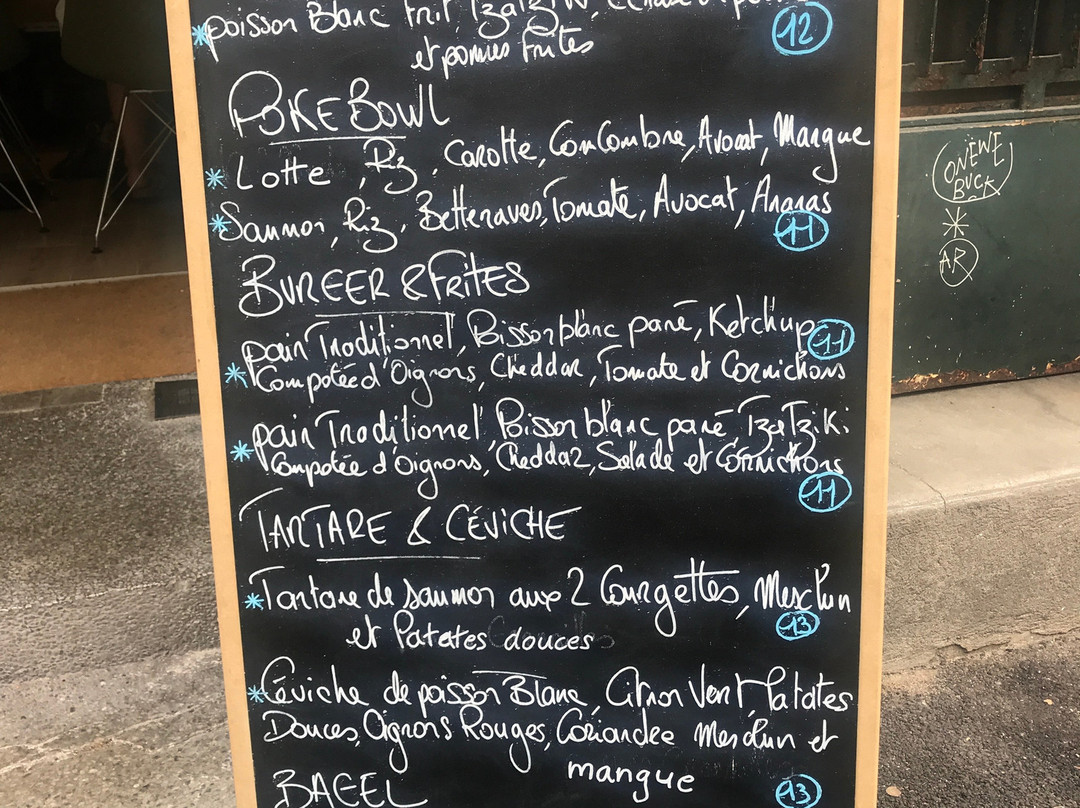 *poisson Blanc frit, Tzatziki,
et pommes frites 12
POKE BOWL
* Lotte, Riz, Carotte, Concombre, Avocat, Mangue
* Saumon, Riz, Betteraves, Tomate, Avocat, Ananas
11
BURGER & FRITES
pain Traditionnel, Poisson blanc pané, Ketchup 11
* Compotée d'Oignons, Cheddar, Tomate et Cornichons
pain Traditionnel, Poisson blanc pané, Tzatziki
* Compotée d'Oignons, Cheddar, Salade et Cornichons
11
TARTARE & CÉVICHE
*Tartare de saumon aux 2 Courgettes, Mesclun
et Patates douces 13
*Céviche de poisson Blanc, Citron Vert, Patates
Douces, Oignons Rouges, Coriandre Mesclun et
mangue 13
BAGEL
ONEWE
BUCK
*
AR